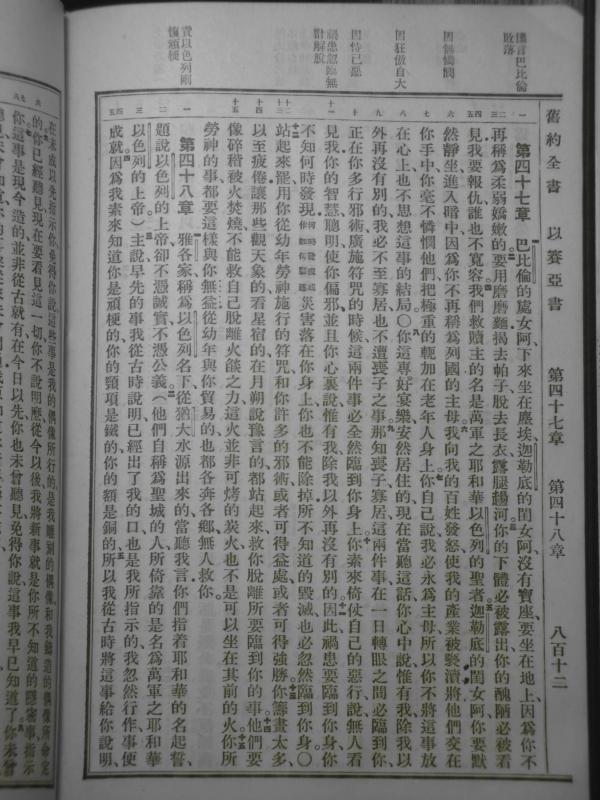 舊約全書 以賽亞書 第四十七章 第四十八章 八百十二
預言巴比倫敗落
因無憐憫
因狂傲自大
因恃己惡
禍患忽臨無術解脫
責以色列剛愎頑梗
一 第四十七章 巴比倫的處女阿、下來坐在塵埃、迦勒底的閨女阿、沒有寶座、要坐在地上、因爲你不
再稱爲柔弱嬌嫩的、要用磨磨麵、揭去帕子、脫去長衣、露腿趟河、你的下體必被露出、你的醜陋必被看
見、我要報仇、誰也不寬容、我們救贖主的名是萬軍之耶和華以色列的聖者、迦勒底的閨女阿、你要默
然靜坐、進入暗中、因爲你不再稱爲列國的主母、我向我的百姓發怒、使我的產業被褻瀆、將他們交在
你手中、你毫不憐憫他們、把極重的軛加在老年人身上、你自己說、我必永爲主母、所以你不將這事放
在心上、也不思想這事的結局〇你這專好宴樂安然居住的、現在當聽這話、你心中說、惟有我、除我以
外再沒有別的、我必不至寡居、也不遭喪子之事、那知喪子寡居、這兩件事、在一日轉眼之間必臨到你、
正在你多行邪術廣施符咒的時候、這兩件事必全然臨到你身上、你素來倚仗自己的惡行、說、無人看
見我、你的智慧聰明、使你偏邪、並且你心裏說、惟有我、除我以外再沒有別的、因此禍患要臨到你身、你
不知何時發現、災害落在你身上、你也不能除掉、所不知道的毀滅、也必忽然臨到你身〇
站起來罷、用你從幼年勞神施行的符咒、和你許多的邪術、或者可得益處、或者可得強勝、你籌畫太多、
以至疲倦、讓那些觀天象的、看星宿的、在月朔說豫言的、都站起來、救你脫離所要臨到你的事、他們要
像碎稭被火焚燒、不能救自己脫離火燄之力、這火並非可烤的炭火、也不是可以坐在其前的火、你所
勞神的事、都要這樣與你無益、從幼年與你貿易的、也都各奔各鄉、無人救你、
一 第四十八章 雅各家、稱爲以色列名下、從猶大水源出來的、當聽我言、你們指着耶和華的名起誓、
題說以色列的上帝、卻不憑誠實、不憑公義（他們自稱爲聖城的人、所倚靠的是名爲萬軍之耶和華
以色列的上帝）主說、早先的事、我從古時說明、已經出了我的口、也是我所指示的、我忽然行作、事便
成就、因爲我素來知道你是頑梗的、你的頸項是鐵的、你的額是銅的、所以我從古時將這事給你說明、
在未成以先指示你、免得你說、這些事是我的偶像所行的、是我雕刻的偶像、和我鑄造的偶像所命定
的、你已經聽見、現在要看見這一切、你不說明麼、從今以後、我將新事、就是你所不知道的隱密事、指示
你、這事是現今造的、並非從古就有、在今日以先、你也未曾聽見、免得你說、這事我早已知道了、你未曾